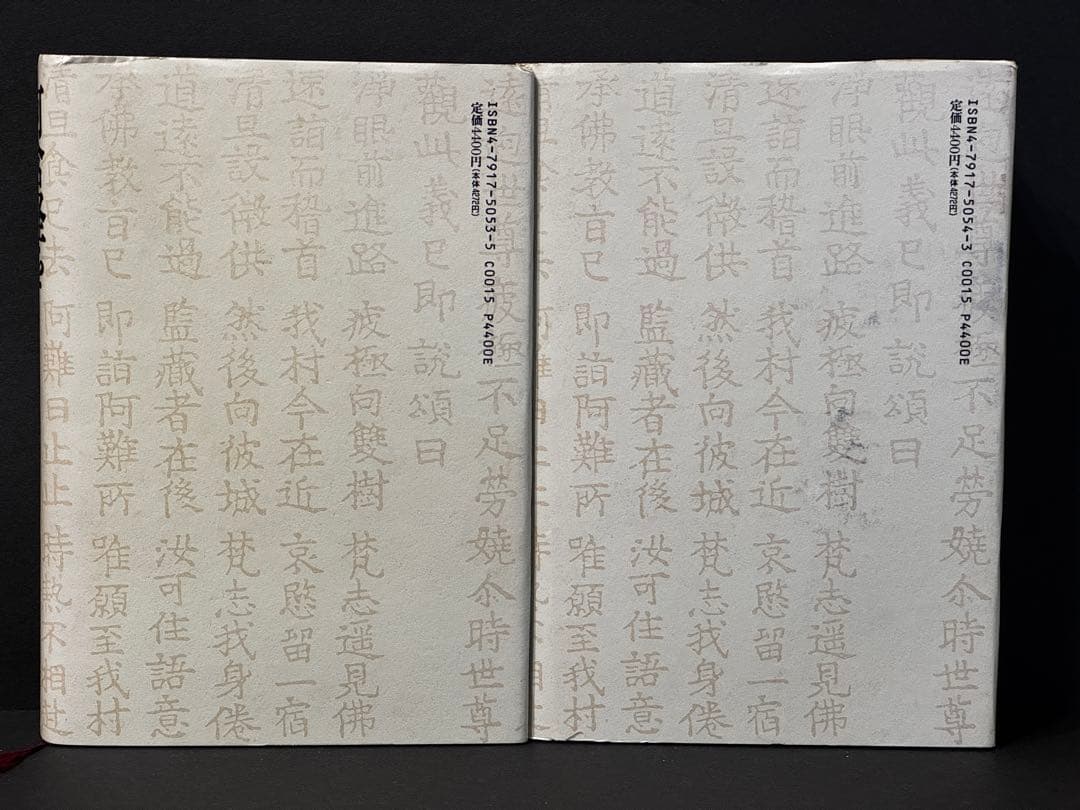 ISBN4-7917-5053-5 C0015 P4400E
定価4400円(本体4272円)
不足勞嬈尒時世尊
觀此義已即說頌曰
淨眼前進路 疲極向雙樹 梵志遥見佛
速詣而稽首 我村今在近 哀愍留一宿
清旦設微供 然後向彼城 梵志我身倦
道遠不能過 監藏者在後 汝可住語意
承佛教旨已 即詣阿難所 唯願至我村
清旦食已去 阿難曰止止 時熱不相
ISBN4-7917-5054-3 C0015 P4400E
定価4400円(本体4272円)
不足勞嬈尒時世尊
觀此義已即說頌曰
淨眼前進路 疲極向雙樹 梵志遥見佛
速詣而稽首 我村今在近 哀愍留一宿
清旦設微供 然後向彼城 梵志我身倦
道遠不能過 監藏者在後 汝可住語意
承佛教旨已 即詣阿難所 唯願至我村